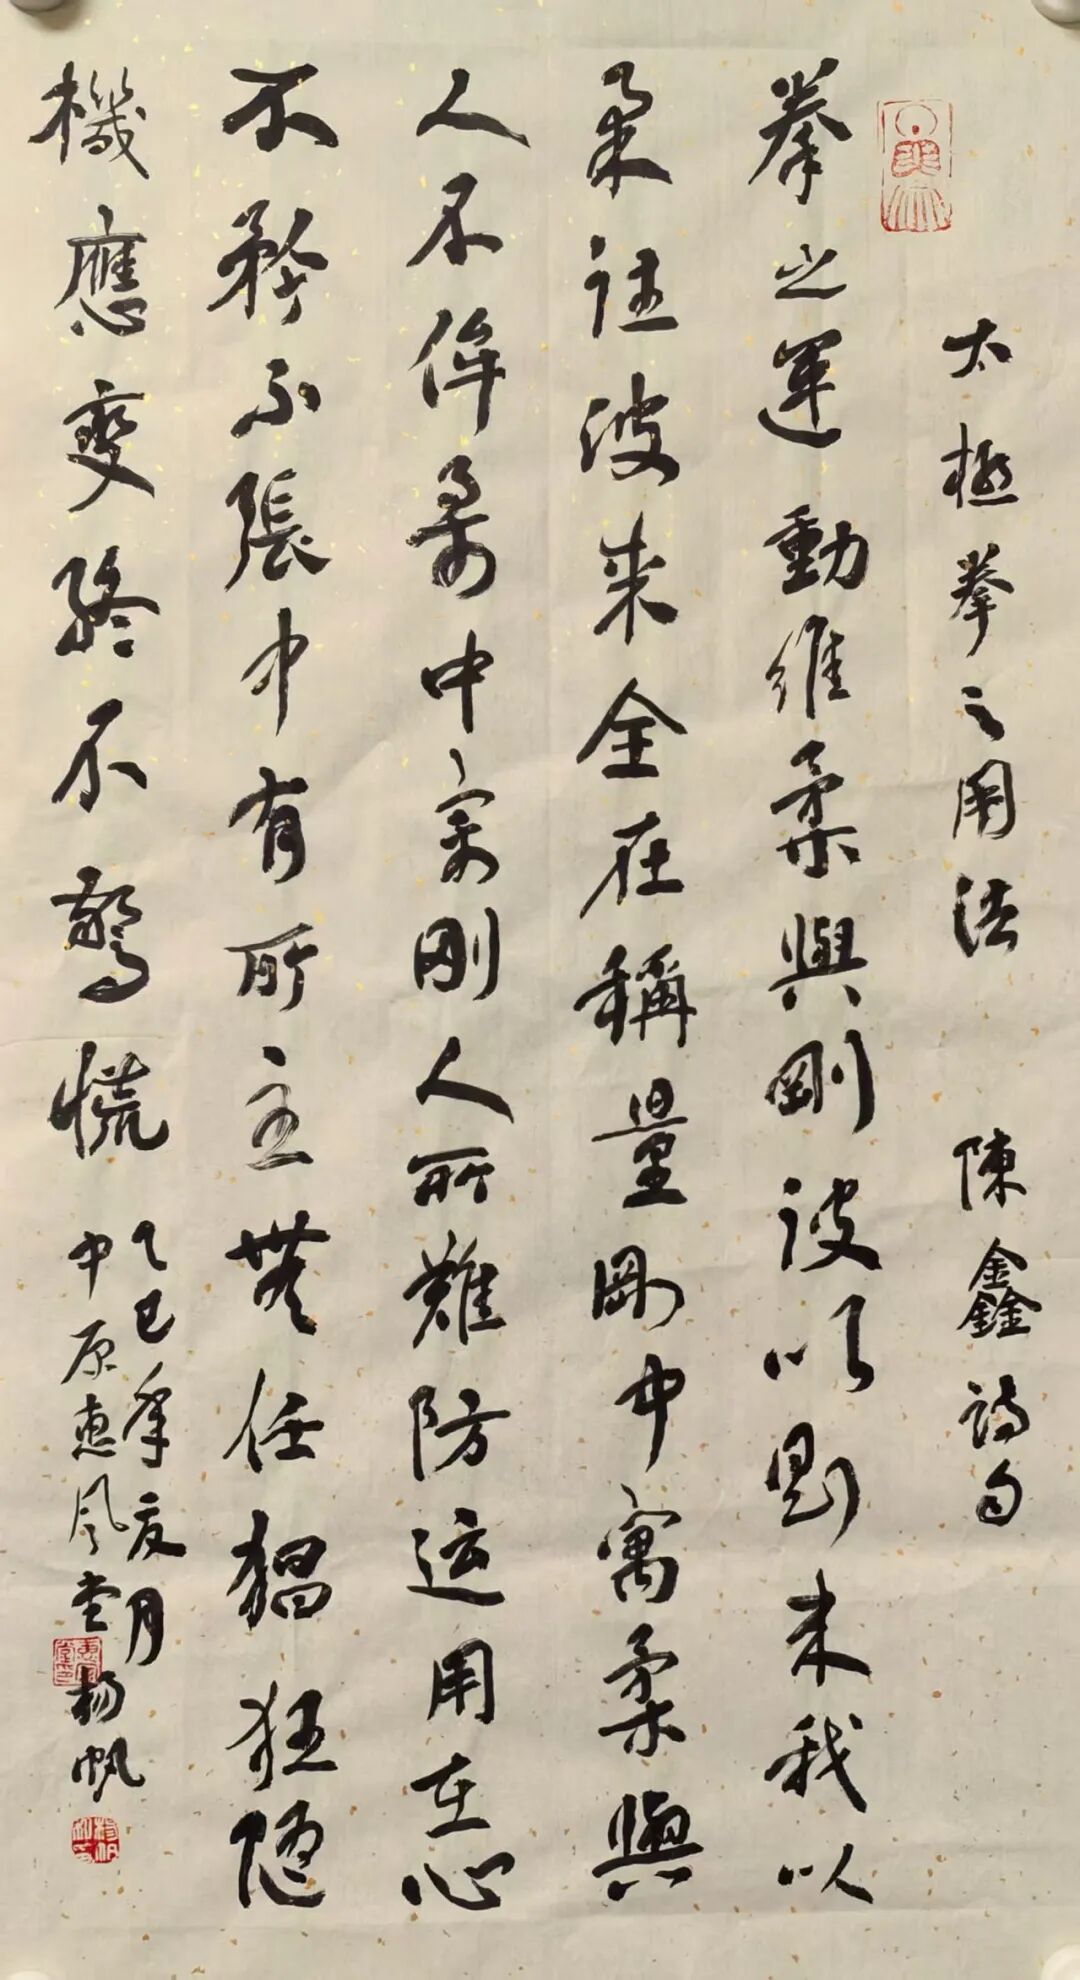 太極拳之用法 陳鑫詩句
拳之運動維柔與剛彼以剛来我以
柔往彼来全在稱量剛中寓柔與
人不侔柔中寓刚人所難防运用在心
不矜不張中有所主無任猖狂隨
機應變終不驚慌
乙巳年夏月
中原惠风堂杨帆